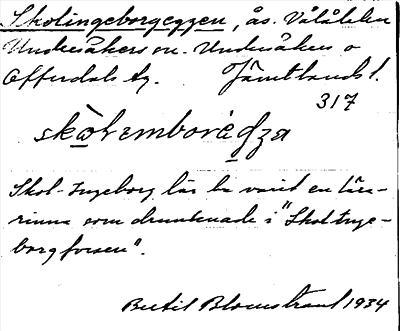 Skolingeborgeggen, ås. Välålden
Undersåkers sn. Undersåkers o
Offerdals tg. Jämtlands l.
317
Skol-Ingeborg lär ha varit en lära-
rinna som drunknade i "Skolinge-
borgforsen".
Bertil Blomstrand 1934